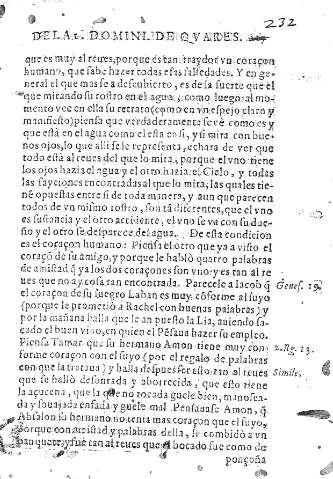 232
DE LA 1. DOMINI. DE QVARES.
que es muy al reues, porque es tan traydor vn coraçon
humano, que sabe hazer todas essas falsedades. Y en ge-
neral el que mas se a descubierto, es de la suerte que el
que mirando su rostro en el agua, como luego al mo-
mento vee en ella su retrato (como en vn espejo claro y
manifiesto) piensa que verdaderamente se vè como es y
que està en el agua como el esta en si, y si mira con bue-
nos ojos, lo que alli se le representa, echara de ver que
todo està al reues del que lo mira, porque el vno tiene
los ojos hazia el agua y el otro hazia el Cielo, y todas
las fayciones encontradas al que lo mira, las quales tie-
nē opuestas entre si de toda manera, y aun que parecen
todos de vn mismo rostro, son tā diferentes, que el vno
es sustancia y el otro accidente, el vno se va con su due-
ño y el otro se desparece del agua. De esta condicion
es el coraçon humano: Piensa el otro que ya a visto el
coraçō de su amigo, y porque le hablò quatro palabras
de amistad q̄ ya los dos coraçones son vno: y es tan al re
ues que no ay cosa tan encontrada. Parecele a Iacob q̄
el coraçon de su suegro Laban es muy cōforme al suyo
(porque le prometiò a Rachel con buenas palabras) y
por la mañana halla que le an puesto la Lia, auiendo sa-
cado el buen vino, en quien el pēsaua hazer su empleo.
Piensa Tamar que su hermano Amon tiene muy con-
forme coraçon con el suyo (por el regalo de palabras
con que la trataua) y halla despues ser esto tan al reues
que se hallò desonrada y aborrecida, que esto tiene
la açucena, que la que no tocada guele bien, manosea-
da y souajada enfada y guele mal. Pensauase Amon, q̄
Absalon su hermano no tenia mas coraçon que el suyo,
porque con amistad y palabras della, le combidò a vn
banquete, y fue tan al reues que el bocado fue como de
ponçoña
Genes. 29.
2. Reg. 13.
Simile.